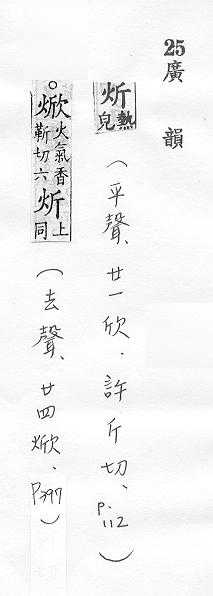 25廣韻
炘熱皃(平聲、廿一欣.許斤切、P.112)
。焮火氣香靳切六炘上同(去聲、廿四焮、P397)